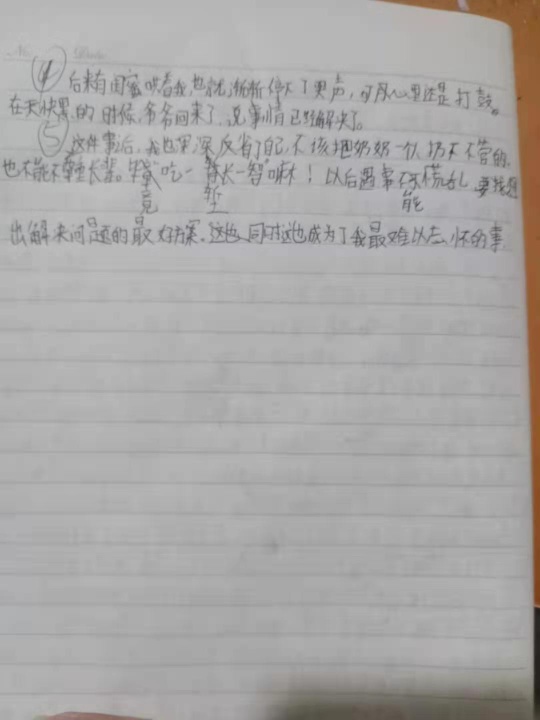 No. Date
④后来有闺蜜哄着我,也就渐渐停下了哭声,可内心里还是打鼓。
在天快黑的时候,爷爷回来了,说事情已经解决了。
⑤这件事后,我也深深反省了自己,不该把奶奶一个人扔下不管的,
也不能不尊重长辈。吃一长一智"嘛!以后遇事不慌乱,要找
竟 堑 能
出解决问题的最好方案。这也同时这也成为了我最难以忘怀的事